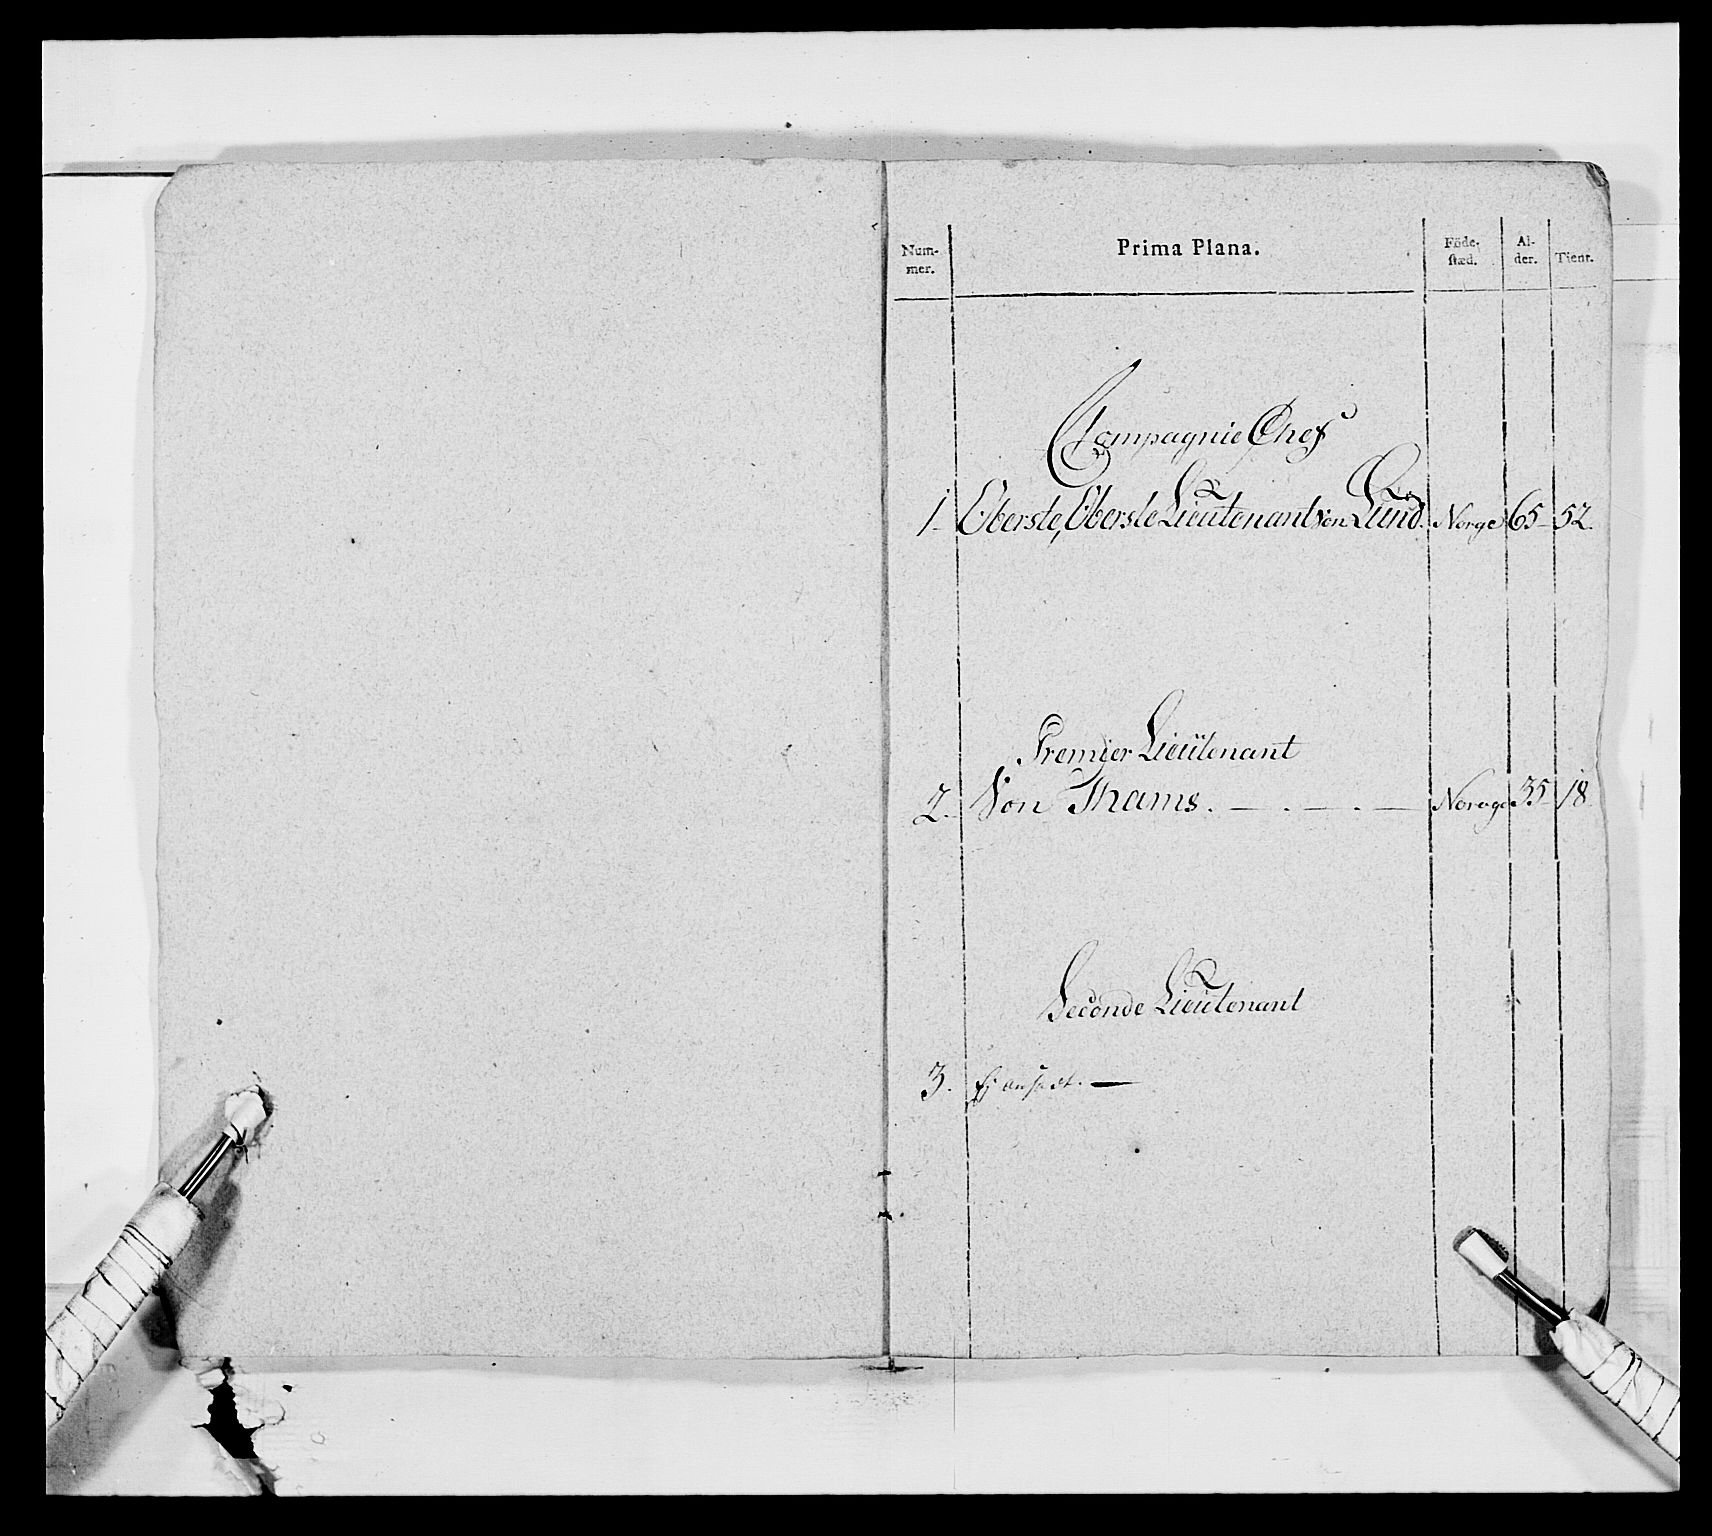 Num-
mer.
Prima Plana.
Föde-
stæd.
Al-
der.
Tient.
Compagnie Chef
1. Oberste, Oberste Lieutenant von Lund. Norge 65 52.
Premier Lieutenant
2. Von Thams. Norge 35 18
Seconde Lieutenant
3. Ej ansadt.